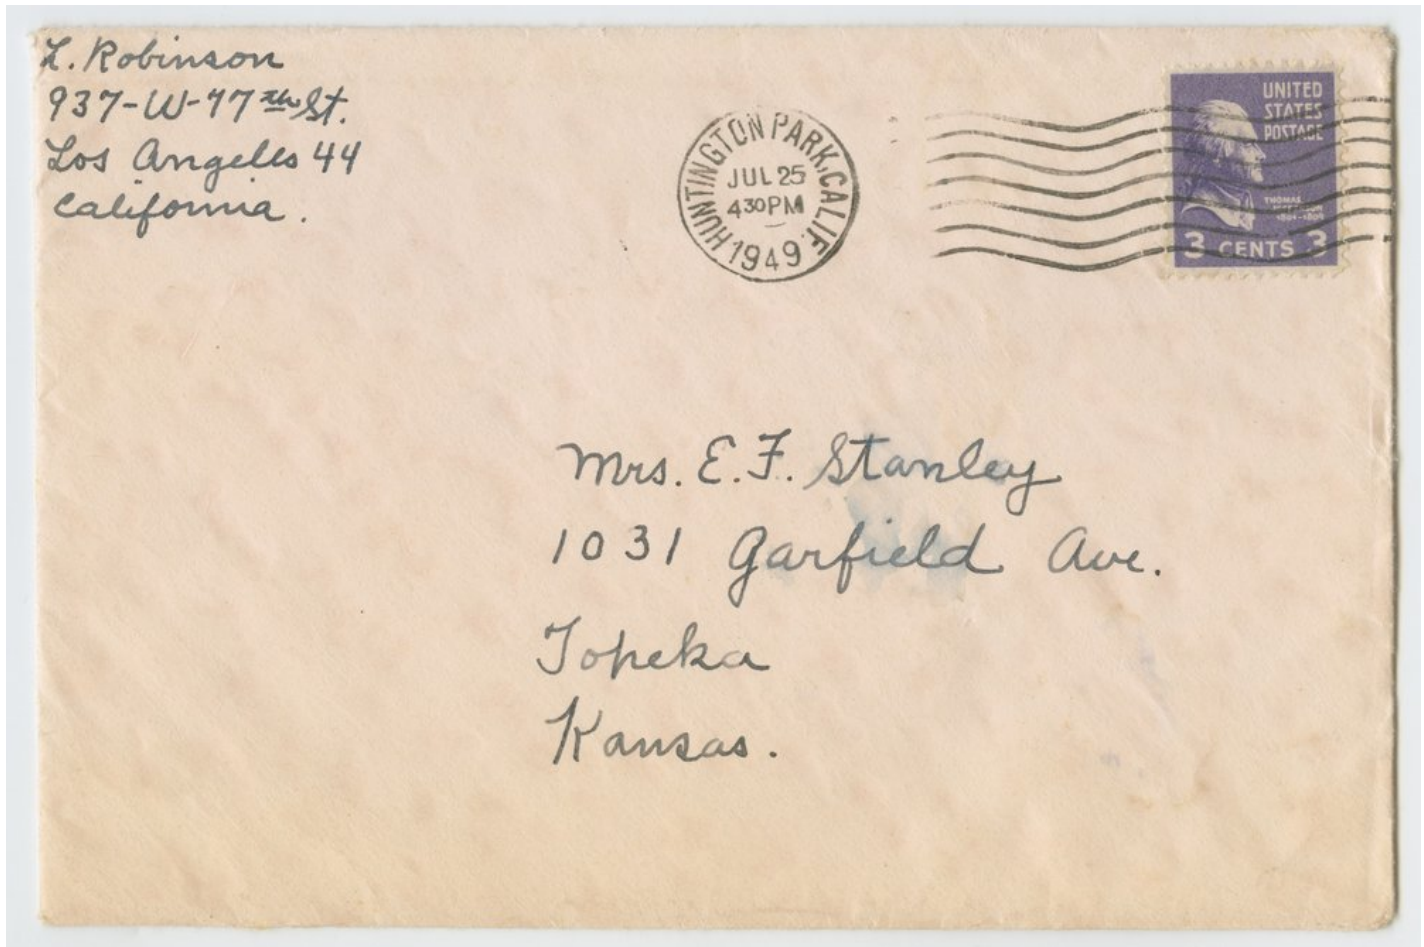 L. Robinson
937-W-77th St.
Los Angeles 44
California.
HUNTINGTON PARK, CALIF.
JUL 25
430PM
1949
UNITED
STATES
POSTAGE
THOMAS
JEFFERSON
1801-1809
3 CENTS 3
Mrs. E. F. Stanley
1031 Garfield Ave.
Topeka
Kansas.